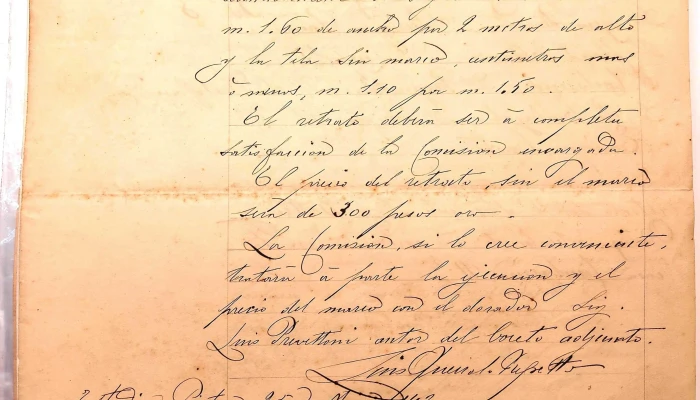 m. 1.60 de ancho por 2 metros de alto
y la tela sin marco, centimetros mas
ò menos, m. 1.10 por m. 1.50.
El retrato deberá ser á completa
satisfaccion de la Comision encargada.
El precio del retrato, sin el marco
será de 300 pesos oro.
La Comision, si lo cree conveniente,
tratará á parte la ejecucion y el
precio del marco con el dorador Sig.
Luis Prevettoni autor del boceto adjunto.
Luis Queirolo Repetto